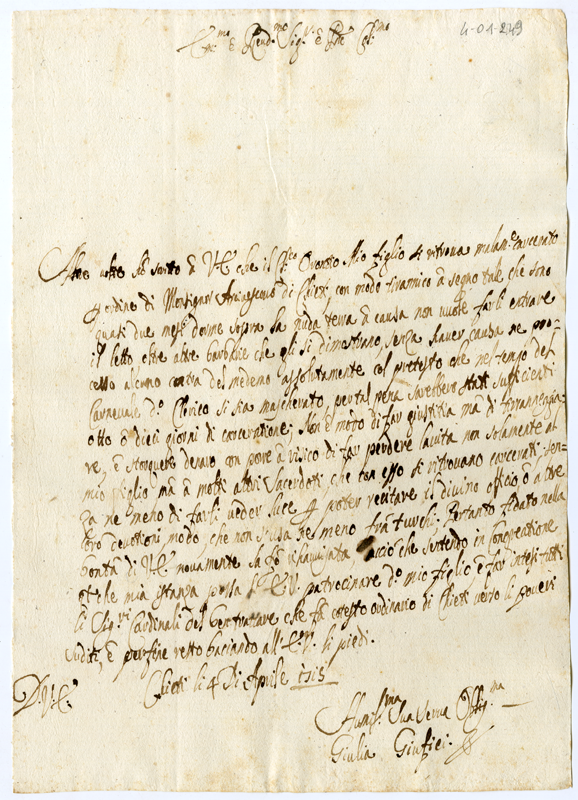 4-01-249
Em.mo e Rend.mo Sig.r e P.ne Col.mo
Altre volte hò scritto à V.E. che il Ch.co Oronzo Mio figlio si ritrova malam.e carcerato
p ordine di Monsignor Arcivescovo di Chieti con modo tirannico à segno tale che sono
quasi due mesi dorme sopra la nuda terra à causa non vuole farli entrare
il letto oltre altre barbarie che gli si dimostrano, senza haver causa ne pro-
cesso alcuno contra del medemo assolutamente col pretesto che nel tempo del
Carnevale d.o Clerico si sia mascherato, per tal pena sarebbero stati sufficienti
otto ò dieci giorni di carceratione; Non è modo di far giustitia ma di tiranneggia-
re, è storquere denaro con porre à risico di far perdere la vita non solamente al
mio figlio mà à molti altri Sacerdoti, che con esso si ritrovano carcerati, sen-
za ne meno di farli veder luce p poter recitare il divino officio ò altre
loro devotioni modo, che non s'usa ne meno frà turchi. Pertanto fidato nella
bontà di V.E. novamente la acciò che sentendo in congregatione
mia istanza possa l'E.V. patrocinare d.o mio figlio è far intesi tutti
li Sig.ri Cardinali del Ben trattare che fà cotesto ordinario di Chieti verso li poveri
suditi, è per fine resto baciando all'E.V. li piedi.
D. V.E. Chieti li 4 Di Aprile 1715
Humil.ma Sua Serva Oblig.ma
Giulia Giufici